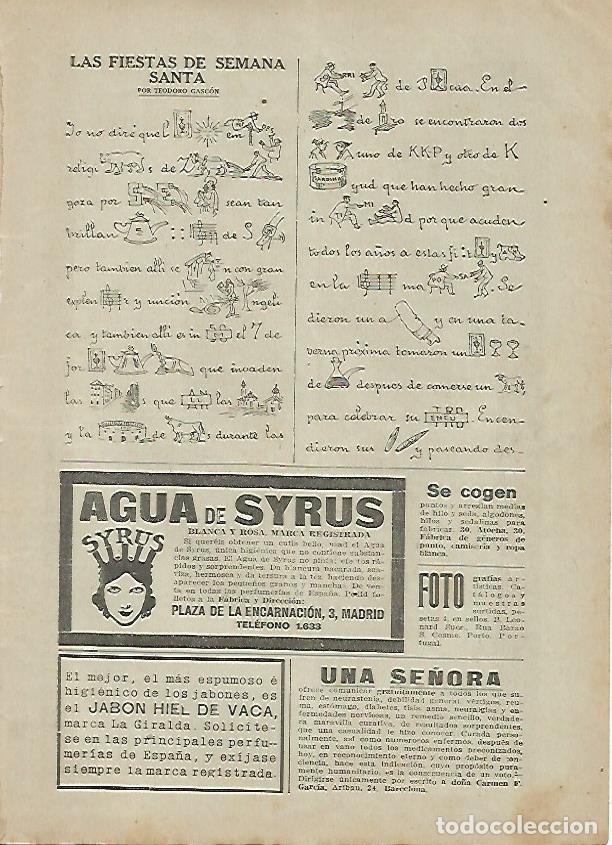 LAS FIESTAS DE SEMANA
SANTA
POR TEODORO GASCÓN
Yo no diré que l em
religi s de Z
goza por sean tan
brillan de S
pero tambien alli se n con gran
explen r y unción ngeli
ca y tambien alli es in el 7 de
jor que invaden
las que an las
y la de s durante las
RRI de P cua. En el
de zo se encontraron dos
uno de KKP y otro de K
SARDINAS yud que han hecho gran
in MI d por que acuden
todos los años a estas fi
en la ma . Se
dieron un a y en una ta
verna próxima tomaron un
de despues de comerse un
para celebrar su ENCU . Encen
dieron sus y paseando des-
AGUA DE SYRUS
BLANCA Y ROSA, MARCA REGISTRADA
SYRUS
Si queréis obtener un cutis bello, usad el Agua
de Syrus, única higiénica que no contiene substan-
cias grasas. El Agua de Syrus no pinta; efectos rá-
pidos y sorprendentes. Da blancura nacarada, sua-
viza, hermosea y da tersura a la tez haciendo des-
aparecer los pequeños granos y manchas. De ven-
ta en todas las perfumerías de España. Pedid fo-
lletos a la Fábrica y Dirección:
PLAZA DE LA ENCARNACIÓN, 3, MADRID
TELÉFONO 1.633
Se cogen
puntos y arreglan medias
de hilo y seda, algodones,
hilos y sedalinas para
fabricar 30, Atocha, 30,
Fábrica de géneros de
punto, camisería y ropa
blanca.
FOTO
grafías ar-
tísticas. Ca-
tálogos y
muestras
surtidas, pe-
setas 4, en sellos. B. Leo-
nard Sucs. Rua Barao
S. Cosme. Porto. Por-
tugal.
El mejor, el más espumoso é
higiénico de los jabones, es
el JABON HIEL DE VACA,
marca La Giralda. Solicite-
se en las principales perfu-
merías de España, y exíjase
siempre la marca registrada.
UNA SEÑORA
ofrece comunicar gratuitamente a todos los que su-
fren de neurastenia, debilidad general, vértigos, reu-
ma, estómago, diabetes, tisis, asma, neuralgias y en-
fermedades nerviosas, un remedio sencillo, verdade-
ra maravilla curativa, de resultados sorprendentes,
que una casualidad le hizo conocer. Curada perso-
nalmente, así como numerosos enfermos, después de
usar en vano todos los medicamentos preconizados,
hoy, en reconocimiento eterno y como deber de con-
ciencia, hace esta indicación, cuyo propósito pura-
mente humanitario, es la consecuencia de un voto.
Dirigirse únicamente por escrito a doña Carmen F.
García, Aribau, 24, Barcelona.
todocoleccion